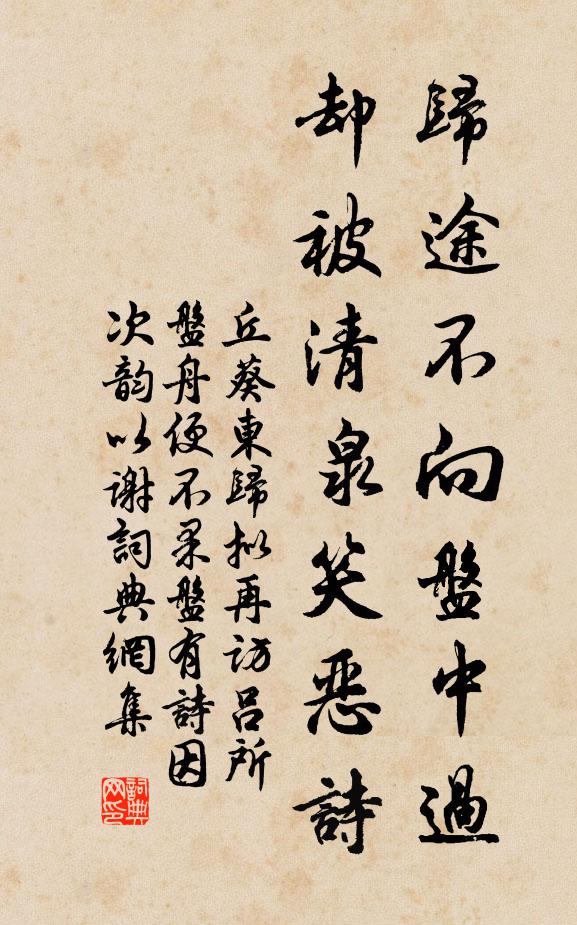 歸途不向盤中過
却被清泉笑惡詩
丘葵東歸擬再訪吕所
盤舟便不果盤有詩因
次韵以謝詞典網集
詞典网印